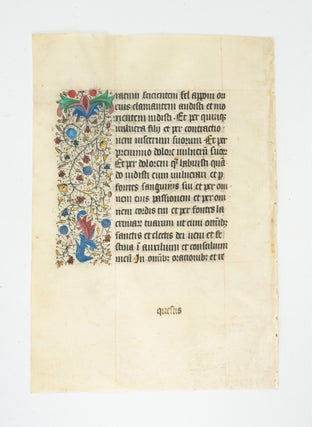 ratum sacientem fel appm on
eius clamantem audisti et mo
rientem vidisti · Et per quiqz
vulnera filij et per contractio
nem viscerum suorum · Et per
premimo dolore vulnerū suor
Et per dolorem qz habuisti quā
do vidisti eum vulnerari et p
fontes sanguinis sui et per om
nem eius passionem et per om
nem cordis tui et per fontes la
crimarz tuarum ut cum omībz
sanctis et electis dei veni et fe
stina ī auxilium et consilium
meū · In omībz orationibz et re
questis